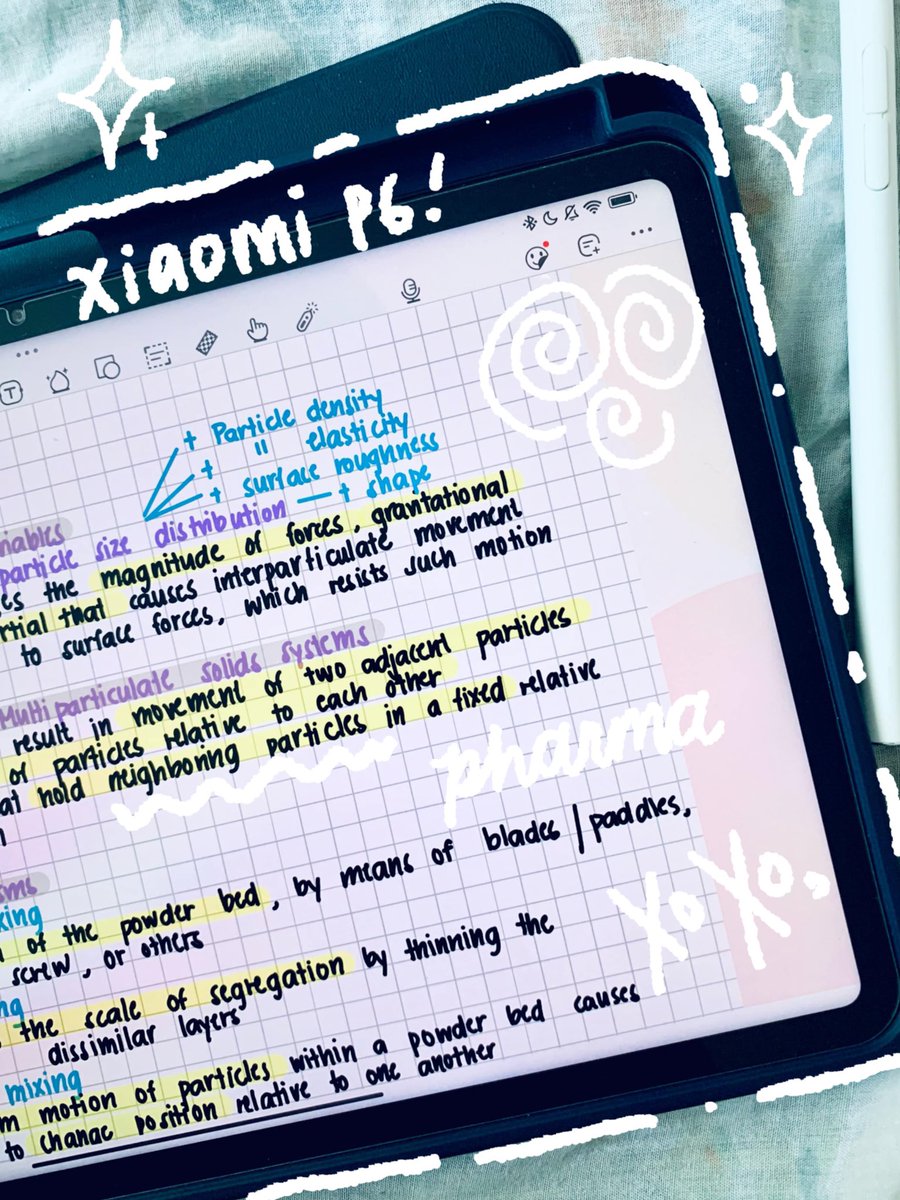 xiaomi P6!
T
+ Particle density
+ " elasticity
+ surface roughness
particle size distribution — + shape
the magnitude of forces, gravitational
that causes interparticulate movement
to surface forces, which resists such motion
Multiparticulate solids systems
result in movement of two adjacent particles
of particles relative to each other
hold neighboring particles in a fixed relative
pharma
of the powder bed, by means of blades / paddles,
screw, or others
the scale of segregation by thinning the
dissimilar layers
mixing
motion of particles within a powder bed causes
to change position relative to one another
XoXo,